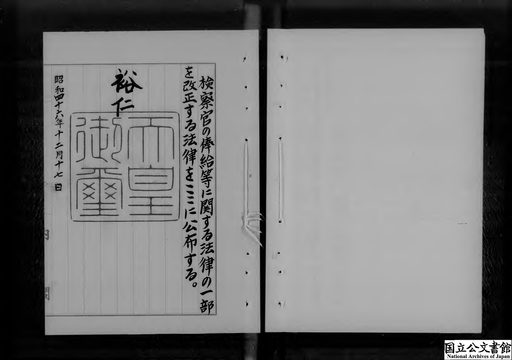 検察官の俸給等に関する法律の一部
を改正する法律をここに公布する。
裕仁
天皇
御璽
昭和四十六年十二月十七日
内閣
国立公文書館
National Archives of Japan